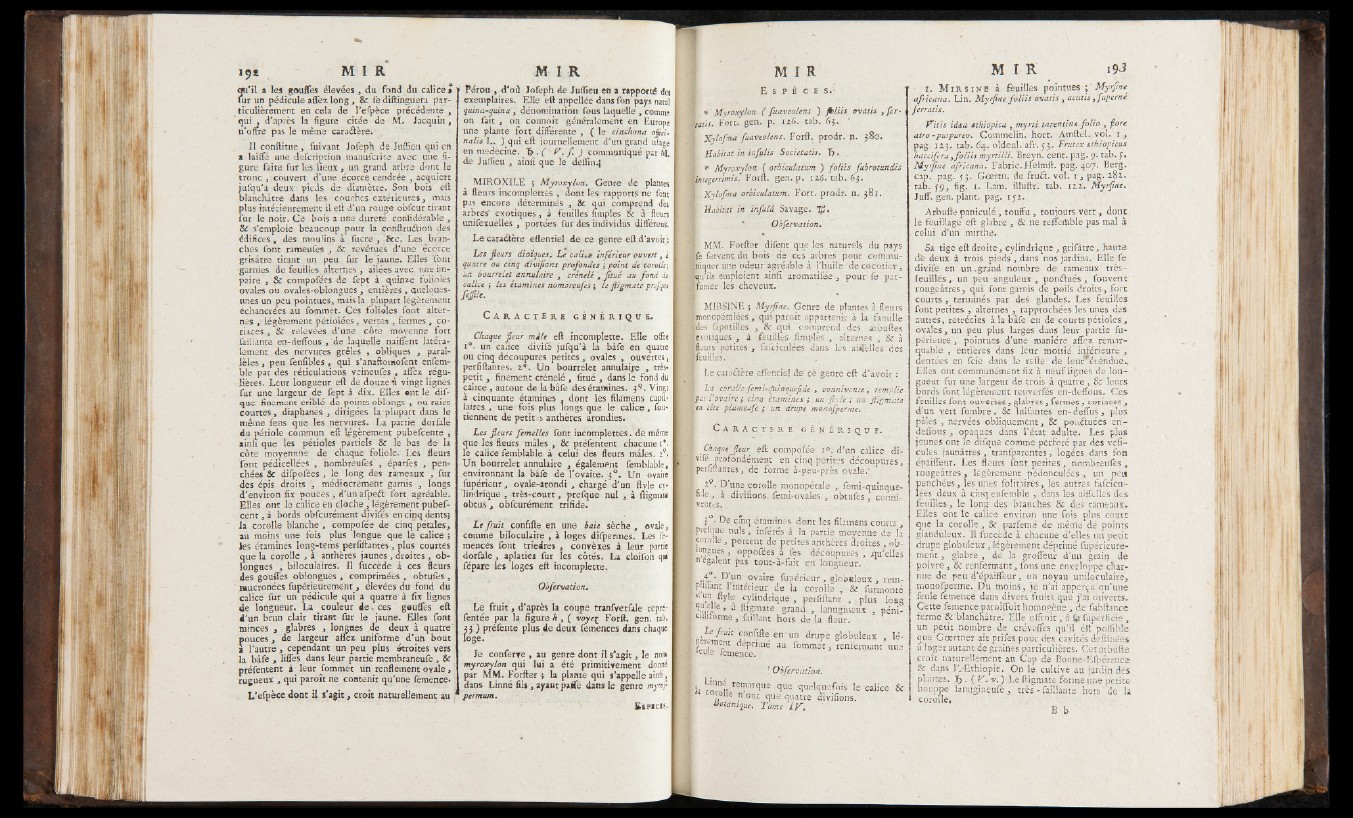 192 M I R
qu'il a les gouſſes élevées, du fond du calice,
ſur un pédicule aſſez long, & ſe diſtinguera par-
ticuliérement en cela de l'eſpèce précédente,
qui, d'après la figure citée de M. Jacquin,
n'offre pas le même caractère.
Il conſtitue, ſuivant Joſeph de Juſſieu qui en
a laiſſé une deſcription manuſcrite avec une fi-
gure faite ſur les lieux, un grand arbre dont le
tronc, couvert d'une écorce cendrée, acquiert
juſqu'à deux pieds de diamètre. Son bois eſt
blanchâtre dans les couches extérieures, mais
plus intérieurement il eſt d'un rouge obſcur tirant
ſur le noir. Ce bois a une dureté conſidérable,
& s'emploie beaucoup pour la conſtruction des
édifices, des moulins à ſucre, &c. Les bran-
ches ſont rameuſes, & revêtues d'une écorce
grisâtre tirant un peu ſur le jaune. Elles ſont
garnies de feuilles alternes, ailées avec une im-
paire, & compoſées de ſept à quinze folioles
ovales ou ovales-oblongues, entières, quelques-
unes un peu pointues, mais la plupart légérement
échancrées au ſommet. Ces folioles ſont alter-
nes, légérement pétiolées, vertes, fermes, co-
riaces, & relevées d'une côte moyenne fort
ſaillante en-deſſous, de laquelle naiſſent latéra-
lement des nervures grêles, obliques, paral-
lèles, peu ſenſibles, qui s'anaſtomoſent enſem-
ble par des réticulations veineuſes, aſſez régu-
lières. Leur longueur eſt de douze à vingt lignes
ſur une largeur de ſept à dix. Elles ont le diſ-
que finement criblé de points oblongs, ou raies
courtes, diaphanes, dirigées la plupart dans le
même ſens que les nervures. La partie dorſale
du pétiole commun eſt légérement pubeſcente,
ainſi que les pétioles partiels & le bas de la
côte moyenne de chaque foliole. Les fleurs
ſont pédicellées, nombreuſes, éparſes, pen-
chées & diſpoſées, le long des rameaux, ſur
des épis droits, médiocrement garnis, longs
d'environ ſix pouces, d'un aſpect fort agréable.
Elles ont le calice en cloche, légérement pubeſ-
cent, à bords obſcurément diviſés en cinq dents;
la corolle blanche, compoſée de cinq pétales,
au moins une fois plus longue que le calice;
les étamines long-tems perſiſtantes, plus courtes
que la corolle, à anthères jaunes, droites, ob-
longues, biloculaires. Il ſuccède à ces fleurs
des gouſſes oblongues, comprimées, obtuſes,
mucronées ſupérieurement, élevées du fond du
calice ſur un pédicule qui a quatre à ſix lignes
de longueur. La couleur de ces gouſſes eſt
d'un brun clair tirant ſur le jaune. Elles ſont
minces, glabres, longues de deux à quatre
pouces, de largeur aſſez uniforme d'un bout
à l'autre, cependant un peu plus étroites vers
la bâſe, liſſes dans leur partie membraneuſe, &
préſentent à leur ſommet un renflement ovale,
rugueux, qui paroît ne contenir qu'une ſemence.
L'eſpèce dont il s'agit, croît naturellement au
M I R
Pérou, d'où Joſeph de Juſſieu en a rapporté des
exemplaires. Elle eſt appellée dans ſon pays natal
quina-quina, dénomination ſous laquelle, comme
on ſait, on connoît généralement en Europe
une plante fort différente, (le cinchona offici-
nalis L.) qui eſt journellement d'un grand uſage
en médecine. ♄. (V. ſ.) communiqué par M.
de Juſſieu, ainſi que le deſſin.
MIROXILE; Myroxylon. Genre de plantes
à fleurs incomplettes, dont les rapports ne ſont
pas encore déterminés, & qui comprend des
arbres exotiques, à feuilles ſimples & à fleurs
uniſexuelles, portées ſur des individus différens.
Le caractère eſſentiel de ce genre eſt d'avoir:
Les fleurs dioïques. Le calice inférieur ouvert, à
quatre ou cinq diviſions profondes; point de corolle;
un bourrelet annulaire, crénelé, ſitué au fond du
calice; les étamines nombreuſes; le ſtigmate preſque
ſeſſile.
CARACTERE GÉNÉRIQUE.
Chaque fleur mâle eſt incomplette. Elle offre
1°. un calice diviſé juſqu'à la bâſe en quatre
ou cinq découpures petites, ovales, ouvertes,
perſiſtantes. 2°. Un bourrelet annulaire, très-
petit, finement crénelé, ſitué, dans le fond du
calice, autour de la bâſe des étamines. 3°. Vingt
à cinquante étamines, dont les filamens capil-
laires, une fois plus longs que le calice, ſou-
tiennent de petites anthères arondies.
Les fleurs femelles ſont incomplettes, de même
que les fleurs mâles, & préſentent chacune 1°.
le calice ſemblable à celui des fleurs mâles. 2°.
Un bourrelet annulaire, également ſemblable,
environnant la bâſe de l'ovaire. 3°. Un ovaire
ſupérieur, ovale-arondi, chargé d'un ſtyle cy-
lindrique, très-court, preſque nul, à ſtigmate
obtus, obſcurément trifide.
Le fruit conſiſte en une baie sèche, ovale,
comme biloculaire, à loges diſpermes. Les ſe-
mences ſont triedres, convèxes à leur partie
dorſale, aplaties ſur les côtés. La cloiſon qui
ſépare les loges eſt incomplette.
Obſervation.
Le fruit, d'après la coupe tranſverſale repré-
ſentée par la figure h, (voyez Forſt. gen. tab.
33) préſente plus de deux ſemences dans chaque
loge.
Je conſerve, au genre dont il s'agit, le nom
myroxylon qui lui a été primitivement donné
par MM. Forſter; la plante qui s'appelle ainſi,
dans Linné fils, ayant paſſé dans le genre myroſ-
permum.
ESPECES.
M I R
ESPÈCES.
* Myroxylon (ſuaveolens) foliis ovatis, ſer-
ratis. Forſt. gen. p. 126. tab. 63.
Xyloſma ſuaveolens. Forſt. prodr. n. 380.
Habitat in inſulis Societatis. ♄.
* Myroxylon (orbiculatum) foliis ſubrotundis
integerrimis. Forſt. gen. p. 126. tab. 63.
Xyloſma orbiculatum. Forſt. prodr. n. 381.
Habitat in inſulâ Savage. ♄.
Obſervation.
MM. Forſter diſent que les naturels du pays
ſe ſervent du bois de ces arbres pour commu-
niquer une odeur agréable à l'huile de cocotier,
qu'ils emploient ainſi aromatiſée, pour ſe par-
fumer les cheveux.
MIRSINE; Myrſine. Genre de plantes à fleurs
monopétalées, qui paroît appartenir à la famille
des ſapotilles, & qui comprend des arbuſtes
exotiques, à feuilles ſimples, alternes, & à
fleurs petites, faſciculées dans les aiſſelles des
feuilles.
Le caractère eſſentiel de ce genre eſt d'avoir:
La corolle ſemi-quinquefide, connivente, remplie
par l'ovaire; cinq étamines; un ſtyle; un ſtigmate
en tête plumeuſe; un drupe monoſperme.
CARACTERE GÉNÉRIQUE.
Chaque fleur eſt compoſée 1°. d'un calice di-
viſé profondément en cinq petites découpures,
perſiſtantes, de forme à-peu-près ovale.
2°. D'une corolle monopétale, ſemi-quinque-
fide, à diviſions ſemi-ovales, obtuſes, conni-
ventes.
3°. De cinq étamines dont les filamens courts,
preſque nuls, inſérés à la partie moyenne de la
corolle, portent de petites anthères droites, ob-
longues, oppoſées à ſes découpures, qu'elles
n'égalent pas tout-à-fait en longueur.
4°. D'un ovaire ſupérieur, globuleux, rem-
pliſſant l'intérieur de la corolle, & ſurmonté
d'un ſtyle cylindrique, perſiſtant, plus long
qu'elle, à ſtigmate grand, lanugineux, péni-
cilliforme, ſaillant hors de la fleur.
Le fruit conſiſte en un drupe globuleux, lé-
gérement déprimé au ſommet, renfermant une
ſeule ſemence.
Obſervation.
Linné remarque que quelquefois le calice &
la corolle n'ont que quatre diviſions.
Botanique. Tome IV.
M I R 193
1. MIRSINE à feuilles pointues; Myrſine
africana. Lin. Myrſine foliis ovatis, acutis, ſupernè
ſerratis.
Vitis idæa æthiopica, myrti tarentinæ folio, flore
atro-purpureo. Commelin. hort. Amſtel. vol. 1,
pag. 123. tab. 64. oldenl. afr. 53. Frutex æthiopicus
baccifera, foliis myrtilli. Breyn. cent. pag. 9. tab. 5.
Myrſine africana. Fabric. Helmſt. pag. 407. Berg.
cap. pag. 53. Gœrtn. de fruct. vol. 1, pag. 282.
tab. 59, fig. 1. Lam. illuſtr. tab. 122. Myrſine.
Juſſ. gen. plant. pag. 152.
Arbuſte paniculé, touffu, toujours vert, dont
le feuillage eſt glabre, & ne reſſemble pas mal à
celui d'un mirthe.
Sa tige eſt droite, cylindrique, griſâtre, haute
de deux à trois pieds, dans nos jardins. Elle ſe
diviſe en un grand nombre de rameaux très-
feuillés, un peu anguleux, ponctués, ſouvent
rougeâtres, qui ſont garnis de poils droits, fort
courts, terminés par des glandes. Les feuilles
ſont petites, alternes, rapprochées les unes des
autres, retrécies à la bâſe en de courts pétioles,
ovales, un peu plus larges dans leur partie ſu-
périeure, pointues d'une manière aſſez remar-
quable, entières dans leur moitié inférieure,
dentées en ſcie dans le reſte de leur étendue.
Elles ont communément ſix à neuf lignes de lon-
gueur ſur une largeur de trois à quatre, & leurs
bords ſont légérement renverſés en-deſſous. Ces
feuilles ſont ouvertes, glabres, fermes, coriaces,
d'un vert ſombre, & luiſantes en-deſſus, plus
pâles, nervées obliquement, & ponctuées en-
deſſous, opaques dans l'état adulte. Les plus
jeunes ont le diſque comme percé par des véſi-
cules jaunâtres, tranſparentes, logées dans ſon
épaiſſeur. Les fleurs ſont petites, nombreuſes,
rougeâtres, légérement pédonculées, un peu
penchées, les unes ſolitaires, les autres faſcicu-
lées deux à cinq enſemble, dans les aiſſelles des
feuilles, le long des branches & des rameaux.
Elles ont le calice environ une fois plus court
que la corolle, & parſemé de même de points
glanduleux. Il ſuccède à chacune d'elles un petit
drupe globuleux, légérement déprimé ſupérieure-
ment, glabre, de la groſſeur d'un grain de
poivre, & renfermant, ſous une enveloppe char-
nue de peu d'épaiſſeur, un noyau uniloculaire,
monoſperme. Du moins, je n'ai apperçu qu'une
ſeule ſemence dans divers fruits que j'ai ouverts.
Cette ſemence paroiſſoit homogène, de ſubſtance
ferme & blanchâtre. Elle offroit, à ſa ſuperficie,
un petit nombre de crévaſſes qu'il eſt poſſible
que Gœrtner ait priſes pour des cavités deſtinées
à loger autant de graines particulières. Cet arbuſte
croît naturellement au Cap de Bonne-Eſpérance
& dans l'Æthiopie. On le cultive au jardin des
plantes. ♄. (V. v.) Le ſtigmate forme une petite
houppe lanugineuſe, très-ſaillante hors de la
corolle.
B b